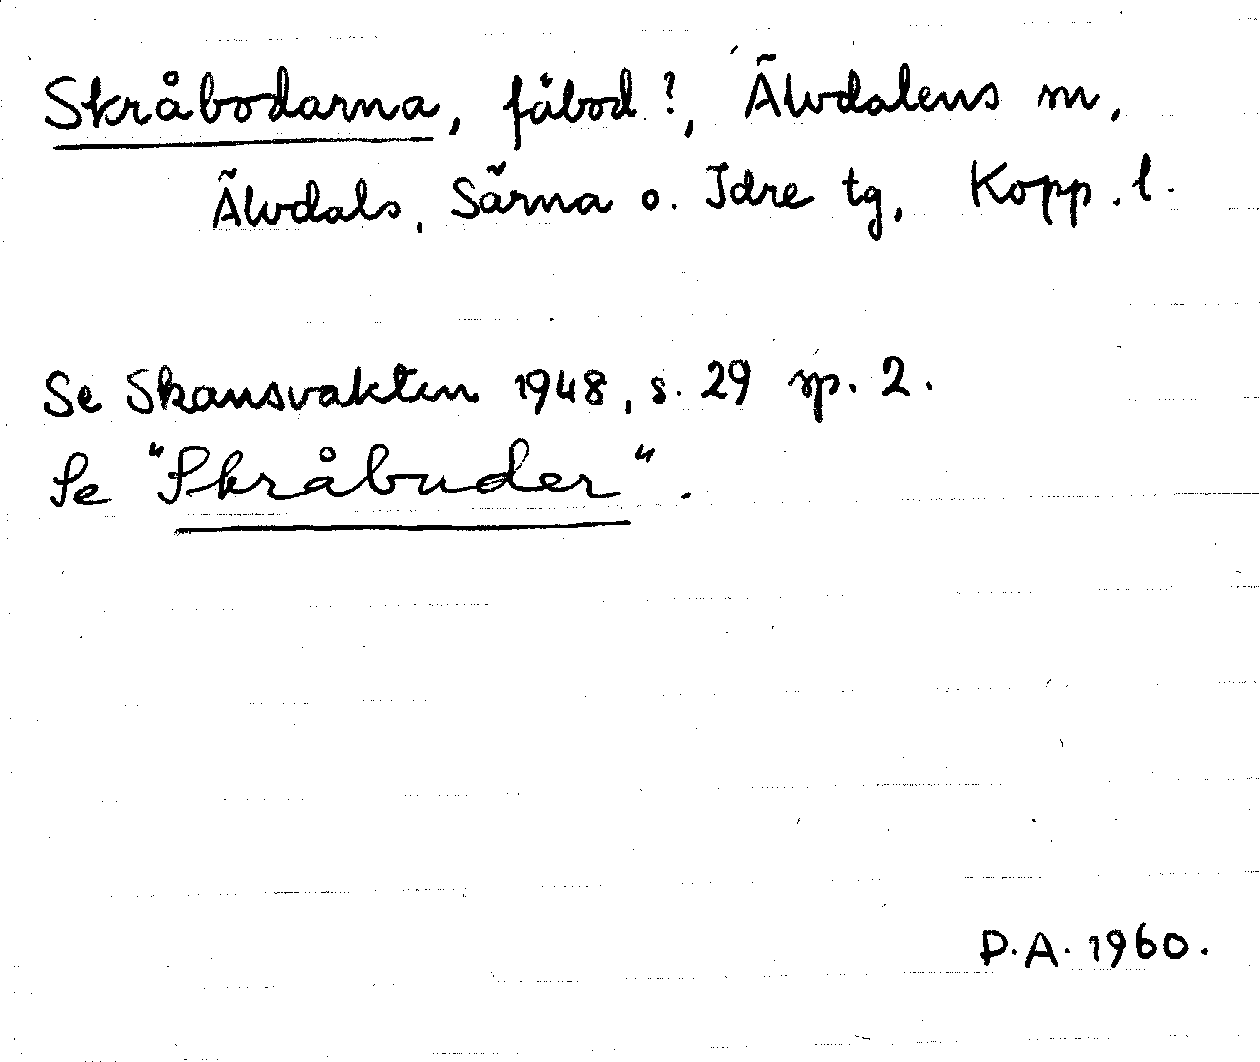 Skråbodarna, fäbod?, Älvdalens m,
Älvdals, Särna o. Idre tg, Kopp. l.
Se Skansvakten 1948, s. 29 sp. 2.
Se "Skråbuder".
D.A. 1960.